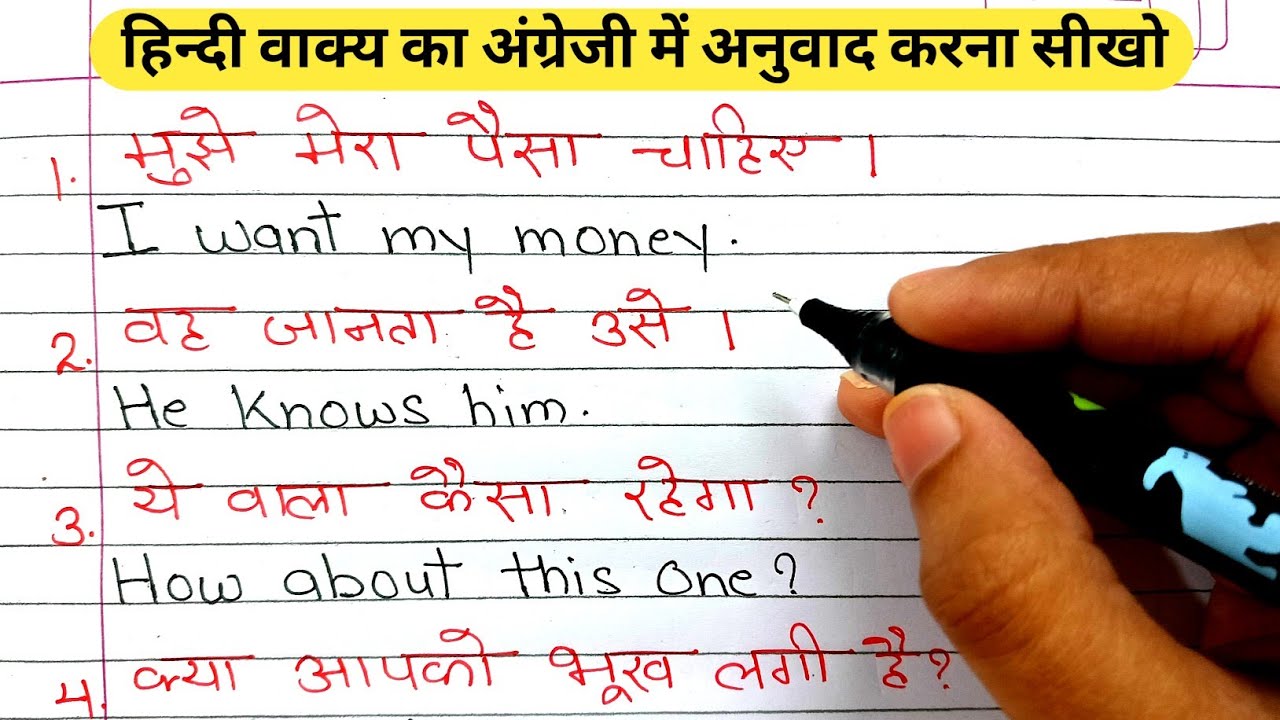 हिन्दी वाक्य का अंग्रेजी में अनुवाद करना सीखो
1. मुझे मेरा पैसा चाहिए ।
I want my money.
2. वह जानता है उसे ।
He Knows him.
3. ये वाला कैसा रहेगा ?
How about this one?
4. क्या आपको भूख लगी है?